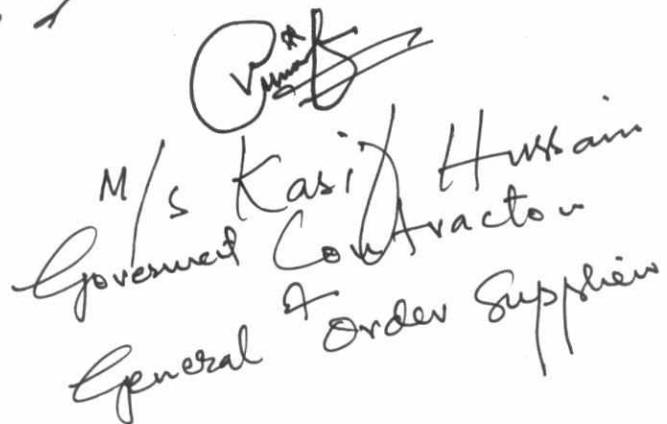 M/s Kasif Hussain
Goverment Contractor
&
General Order Supplier